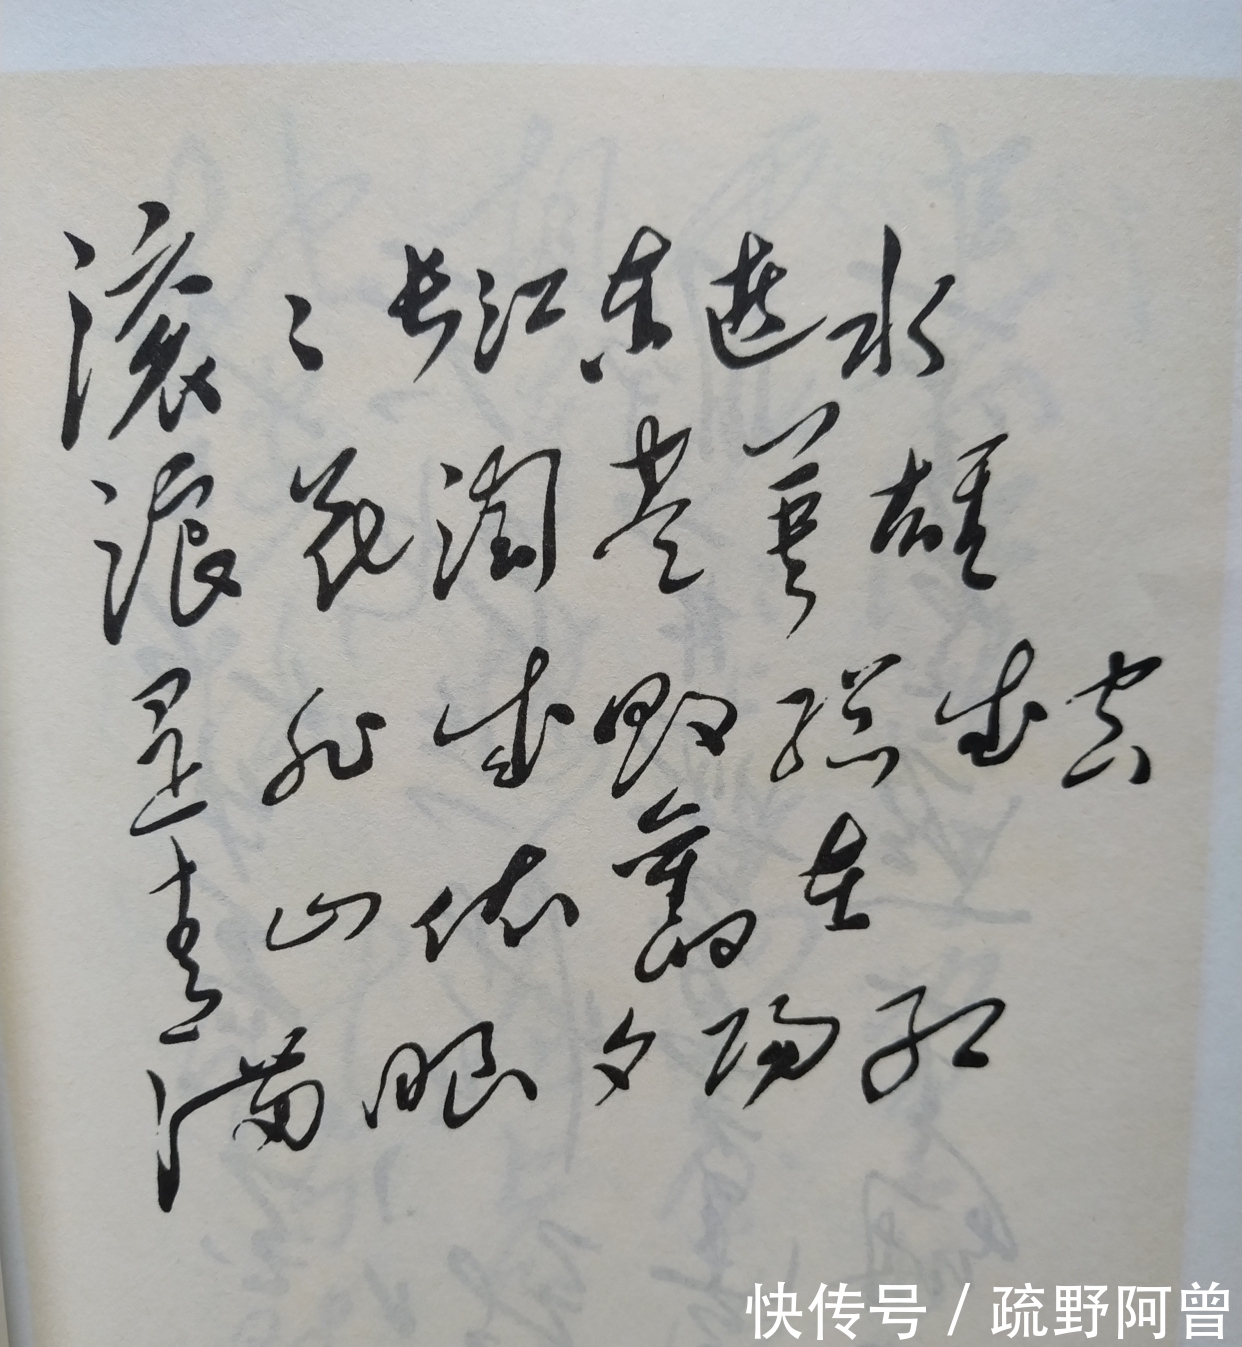 滚々长江东逝水
浪花淘尽英雄
是非成败總成空
青山依舊在
满眼夕阳红
快传号 / 疏野阿曾